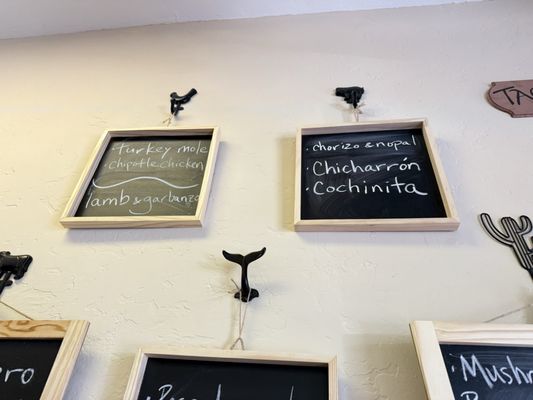 · turkey mole
· chipotle chicken
· lamb & garbanzo
· chorizo & nopal
· Chicharrón
· Cochinita